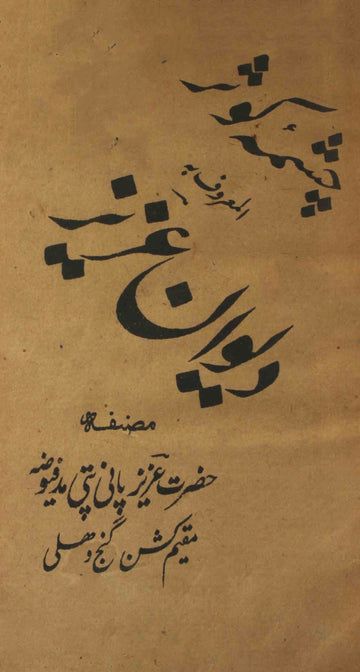 چشمۂ کوثر
المعروف بہ
دیوان عزیز
مصنفہ
حضرت عزیز پانی پتی مد فیوضہ
مقیم کشن گنج دهلی